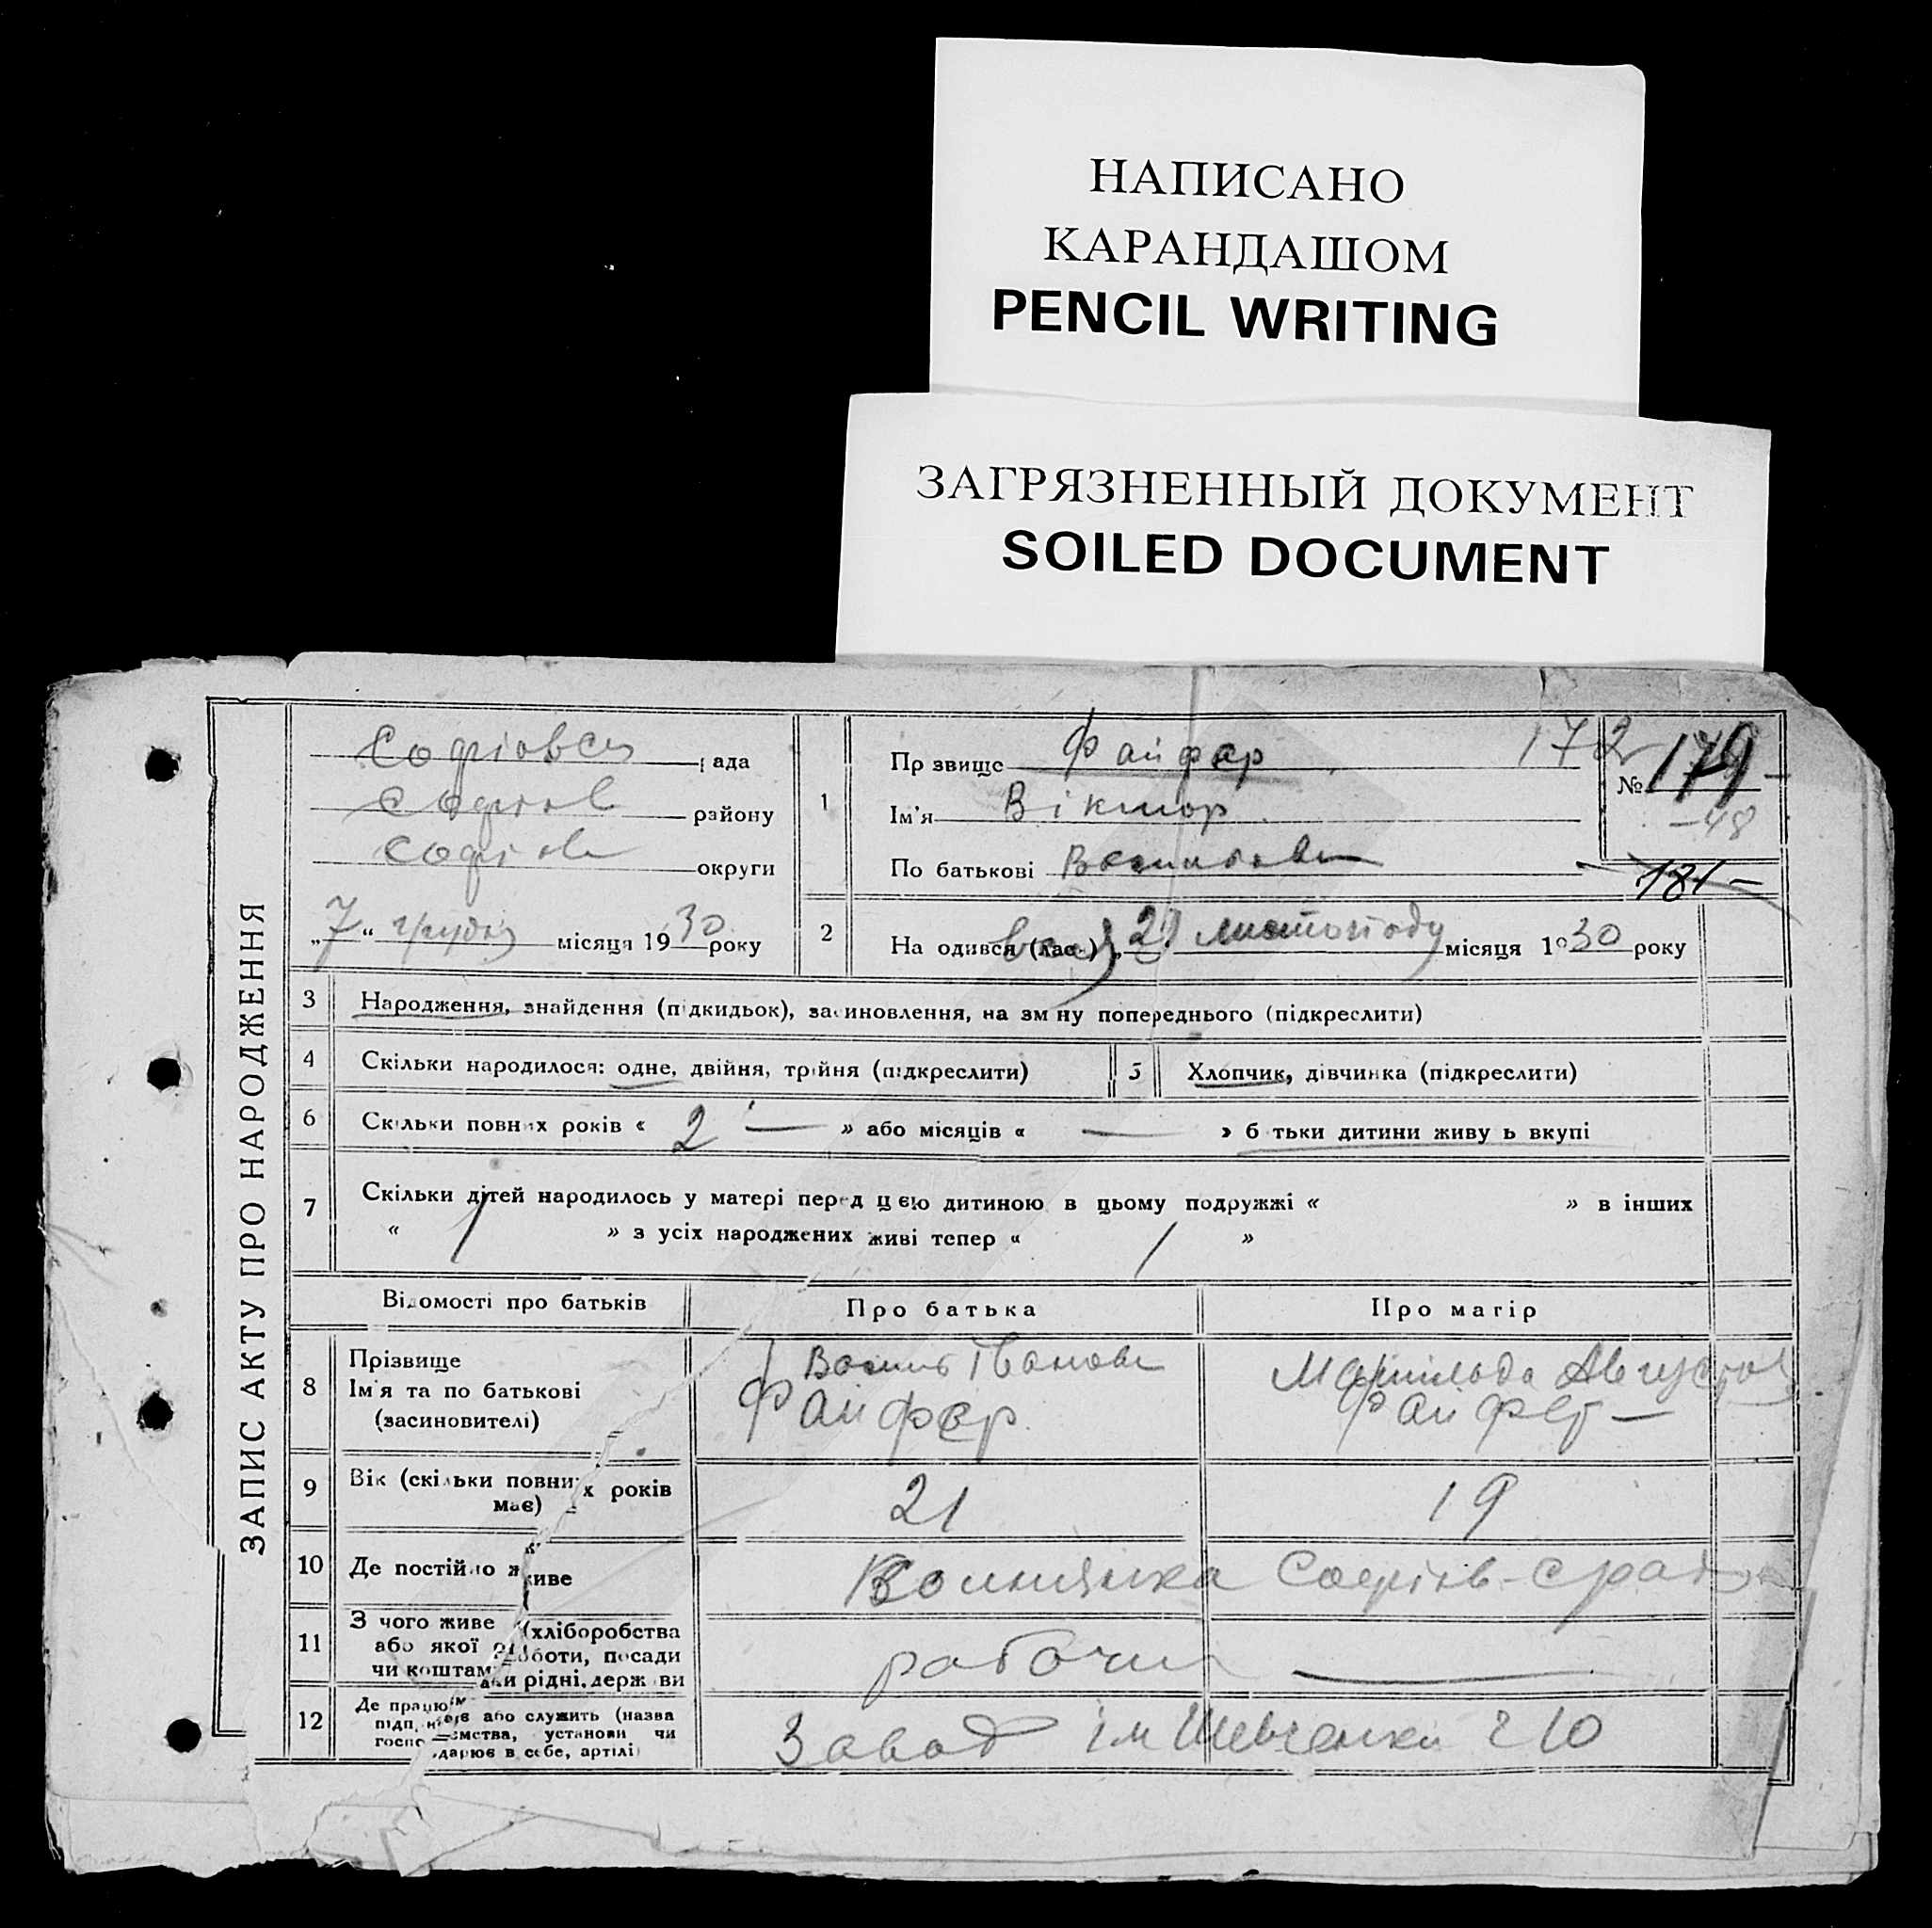 НАПИСАНО
КАРАНДАШОМ
PENCIL WRITING
ЗАГРЯЗНЕННЫЙ ДОКУМЕНТ
SOILED DOCUMENT
ЗАПИС АКТУ ПРО НАРОДЖЕННЯ
ада
району
округи
„7“ грудня місяця 1930 року
1
Пр звище Файфер
Ім'я Віктор
По батькові
172
№ 179
-48
181 -
2
На одився (лас ) „ листопаду місяця 1930 року
3 Народження, знайдення (підкидьок), засиновлення, на зм ну попереднього (підкреслити)
4 Скільки народилося: одне, двійня, трійня (підкреслити) 5 Хлопчик, дівчинка (підкреслити)
6 Скільки повних років « 2 — » або місяців « — » б тьки дитини живу ь вкупі
7 Скільки дітей народилось у матері перед цією дитиною в цьому подружжі « » в інших
« / » з усіх народжених живі тепер « / »
Відомості про батьків Про батька Про матір
8 Прізвище
Ім'я та по батькові
(засиновителі)
Василь Іванов
Файфер
Августов
Файфер —
9 Вік (скільки повних років
має) 21 19
10 Де постійно живе
11 З чого живе (хліборобства
або якої роботи, посади
чи коштами рідні, держ ви
12 Де працює або служить (назва
підп установи чи
артілі)
Завод ім Шевченка 210